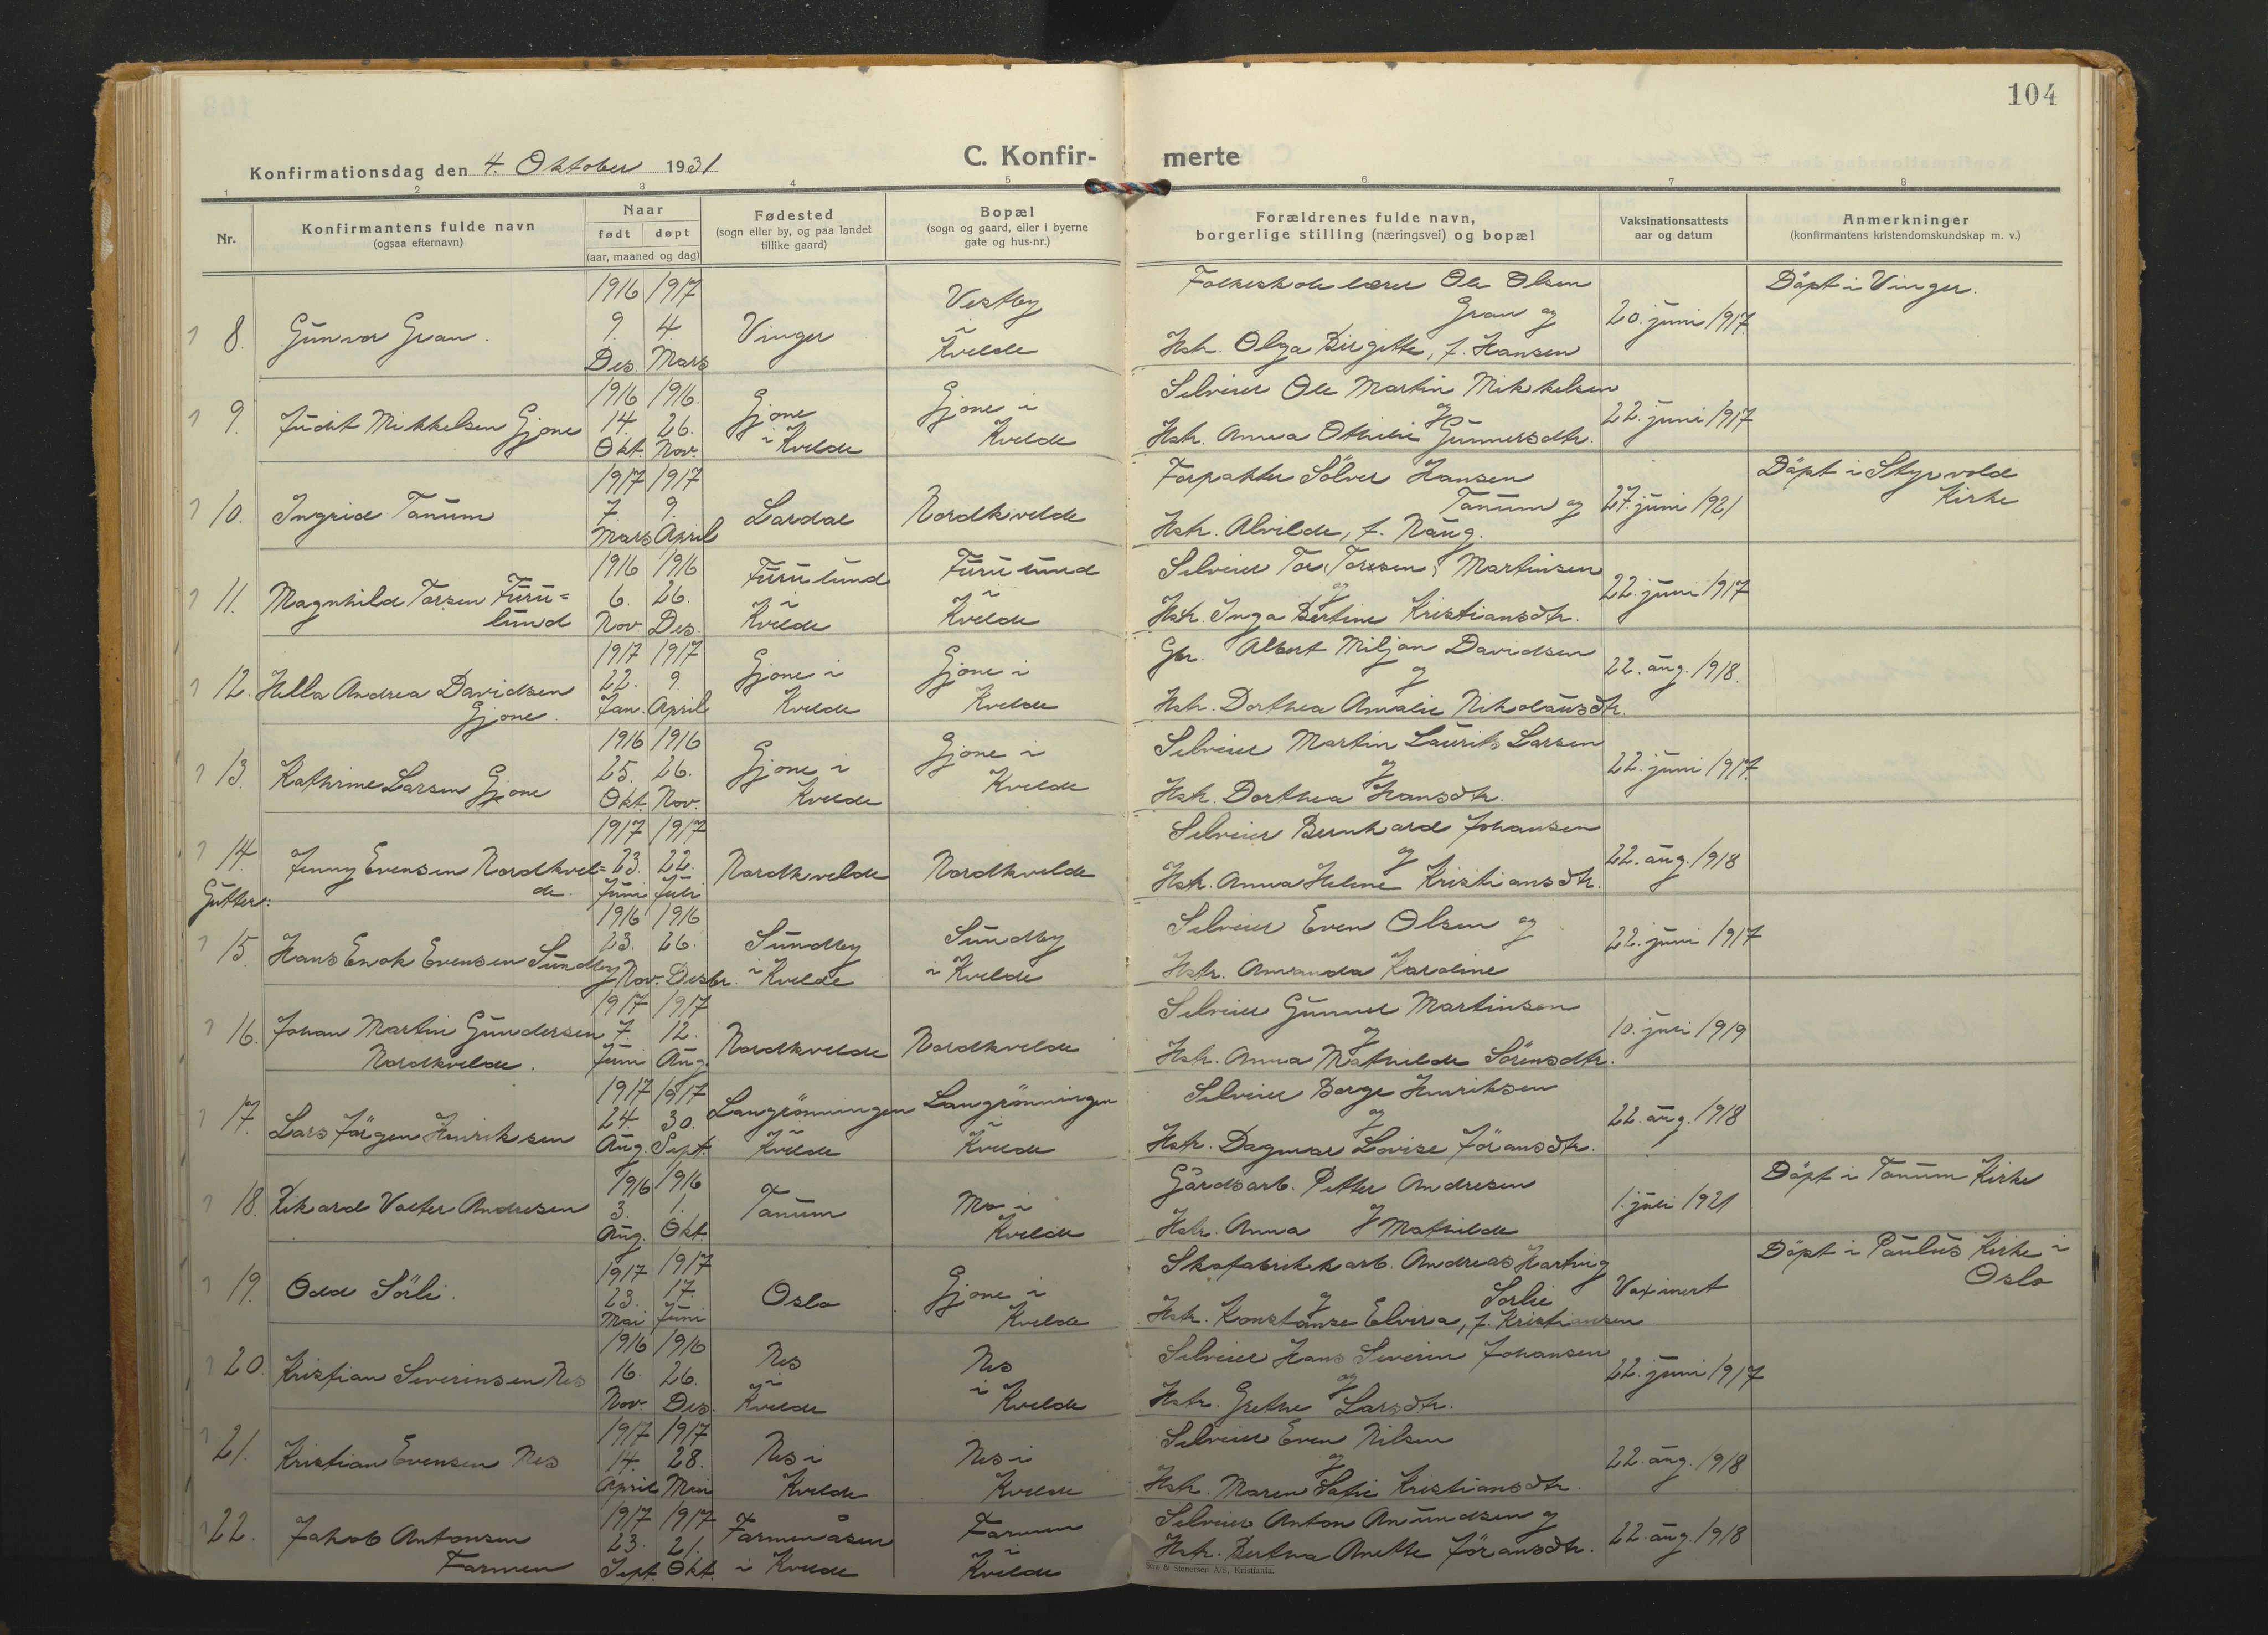 104
Konfirmationsdag den 4. Oktober 1931
C. Konfir- merte
1 2 3 4 5 6 7 8
Nr.
Konfirmantens fulde navn
(ogsaa efternavn)
Naar
født døpt
(aar, maaned og dag)
Fødested
(sogn eller by, og paa landet
tillike gaard)
Bopæl
(sogn og gaard, eller i byerne
gate og hus-nr.)
Forældrenes fulde navn,
borgerlige stilling (næringsvei) og bopæl
Vaksinationsattests
aar og datum
Anmerkninger
(konfirmantens kristendomskundskap m. v.)
8. Gunvor Gran.
1916 1917
9. 4.
Des. Mars
Vinger
Vestby
i
Kvelde
Folkeskolelærer Ole Olsen
Gran og
Hstr. Olga Birgitte, f. Hansen
20. juni 1917
Döpt i Vinger.
9. Judit Mikkelsen Gjone
1916 1916.
14. 26.
Okt. Nov.
Gjone
i Kvelde
Gjone i
Kvelde
Selveier Ole Martin Mikkelsen
og
Hstr. Anna Othilie Gunnersdtr.
22. juni 1917
10. Ingrid Tanum
1917 1917
7. 9.
Mars April
Lardal
Nordkvelde
Forpakter Sölver Hansen
Tanum og
Hstr. Alvilde, f. Naug.
27. juni 1921
Döpt i Styrvold
Kirke
11. Magnhild Torsen Furu=
lund
1916 1916
6. 26.
Nov. Des.
Furulund
i
Kvelde
Furulund
i
Kvelde
Selveier Tor (Toresen) Martinsen
og
Hstr. Inga Bertine Kristiansdtr.
22. juni 1917
12. Hella Andrea Davidsen
Gjone.
1917 1917
22. 9.
Jan. April
Gjone i
Kvelde
Gjone i
Kvelde
Gbr. Albert Miljan Davidsen
og
Hstr. Dorthea Amalie Nikolausdtr.
22. aug. 1918.
13. Kathrine Larsen Gjone
1916 1916
25. 26.
Okt. Nov.
Gjone i
Kvelde
Gjone i
Kvelde
Selveier Martin Laurits Larsen
og
Hstr. Dorthea Hansdtr.
22. juni 1917.
14. Jenny Evensen Nordkvel=
de.
1917 1917
23. 22.
Juni Juli
Nordkvelde
Nordkvelde
Selveier Bernhard Johansen
og
Hstr. Anna Helene Kristiansdtr.
22. aug. 1918
Gutter:
15. Hans Enok Evensen Sundby
1916 1916
23. 26.
Nov. Desbr.
Sundby
i Kvelde
Sundby
i Kvelde
Selveier Even Olsen og
Hstr. Amanda Karoline
22. juni 1917
16. Johan Martin Gundersen
Nordkvelde.
1917 1917
7. 12.
Juni Aug.
Nordkvelde
Nordkvelde
Selveier Gunner Martinsen
og
Hstr. Anna Mathilde Sörensdtr.
10. juli 1919
17. Lars Jörgen Henriksen
1917 1917
24. 30.
Aug. Sept.
Langrönningen
i
Kvelde
Langrönningen
i
Kvelde
Selveier Borge Henriksen
og
Hstr. Dagmar Lovise Jöransdtr.
22. aug. 1918
18. Rikard Valter Andresen
1916 1916
3. 1.
Aug. Okt.
Tanum
Mo i
Kvelde
Gårdsarb. Petter Andresen
og
Hstr. Anna Mathilde
1. juli 1921
Döpt i Tanum Kirke
19. Odd Sörli.
1917 1917
23. 17.
Mai Juni
Oslo
Gjone i
Kvelde
Skofabrikkarb. Andreas Hartvig
og Sorlie
Hstr. Konstanse Elvira, f. Kristiansen
Vaxinert
Döpt i Paulus Kirke i
Oslo
20. Kristian Severinsen Nes
1916 1916
16. 26.
Nov. Des.
Nes
i
Kvelde
Nes
i Kvelde
Selveier Hans Severin Johansen
og
Hstr. Grethe Larsdtr.
22. juni 1917
21. Kristian Evensen Nes
1917 1917
14. 28.
April Mai
Nes i
Kvelde
Nes i
Kvelde
Selveier Even Nilsen
og
Hstr. Maren Sofie Kristiansdtr.
22. aug. 1918
22. Jakob Antonsen
Farmen
1917 1917
23. 21.
Sept. Okt.
Farmenåsen
i Kvelde
Farmen
i
Kvelde
Selveier Anton Amundsen og
Hstr. Bertha Anette Jöransdtr.
22. aug. 1918
Sem & Stenersen A/S, Kristiania.